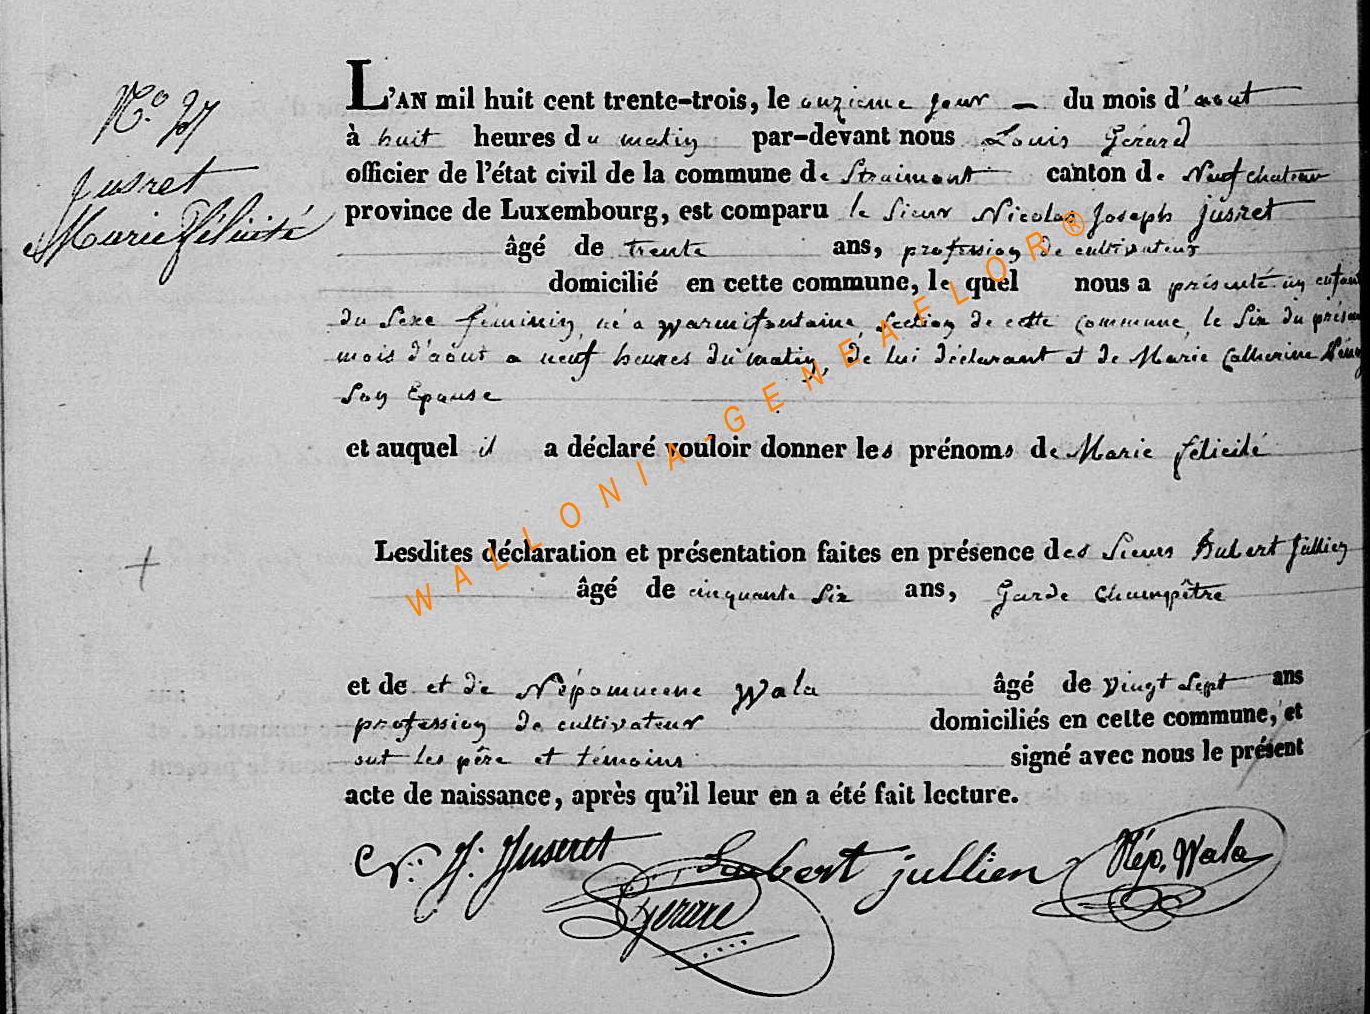 N.° 27
Jusret
Marie Félicité
L'AN mil huit cent trente-trois, le onzieme jour — du mois d'aout
à huit heures du matin par-devant nous Louis Gérard
officier de l'état civil de la commune de Straimont canton de Neufchateau
province de Luxembourg, est comparu le Sieur Nicolas Joseph Jusret
âgé de trente ans, profession de cultivateur
domicilié en cette commune, le quel nous a présenté un enfant
du Sexe féminin, né a Warmifontaine, Section de cette Commune, le Six du présent
mois d'aout a neuf heures du matin, de lui déclarant et de Marie Catherine
Son Epouse
et auquel il a déclaré vouloir donner les prénoms de Marie félicité
Lesdites déclaration et présentation faites en présence des Sieurs Hubert Jullien
âgé de cinquante Six ans, Garde Champêtre
et de et de Népomucene Wala âgé de vingt Sept ans
profession de cultivateur domiciliés en cette commune, et
ont les père et témoins signé avec nous le présent
acte de naissance, après qu'il leur en a été fait lecture.
N. J. Juseret Hubert jullien Nép. Wala
L Gerard
WALLONIA-GENEAFLOR®